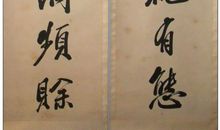 有態
頻賒